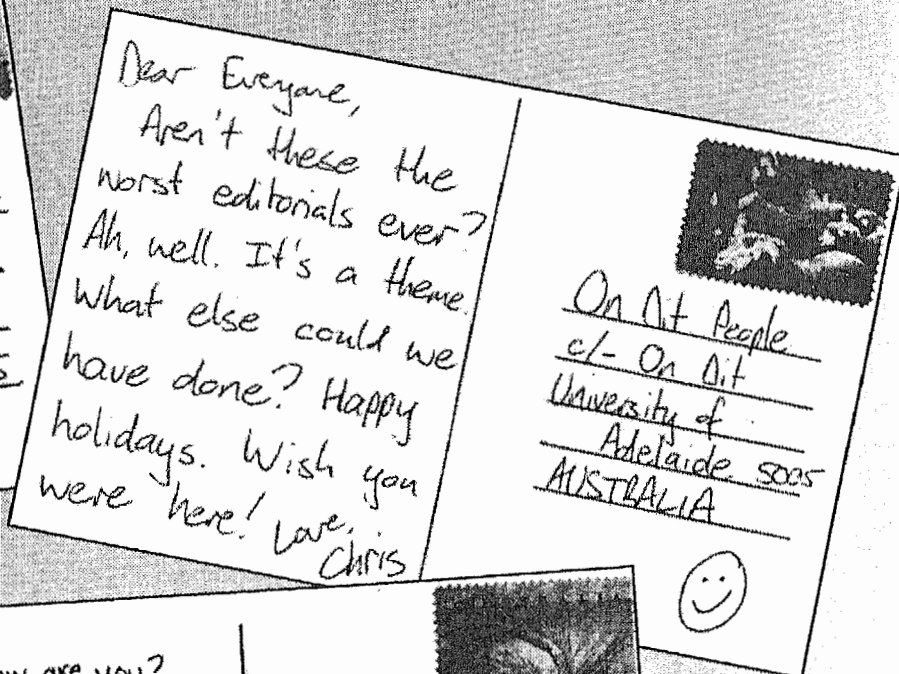 Dear Everyone,
Aren't these the
worst editorials ever?
Ah, well. It's a theme.
What else could we
have done? Happy
holidays. Wish you
were here! Love,
Chris
On Dit People
c/- On Dit
University of
Adelaide 5005
AUSTRALIA
are you?